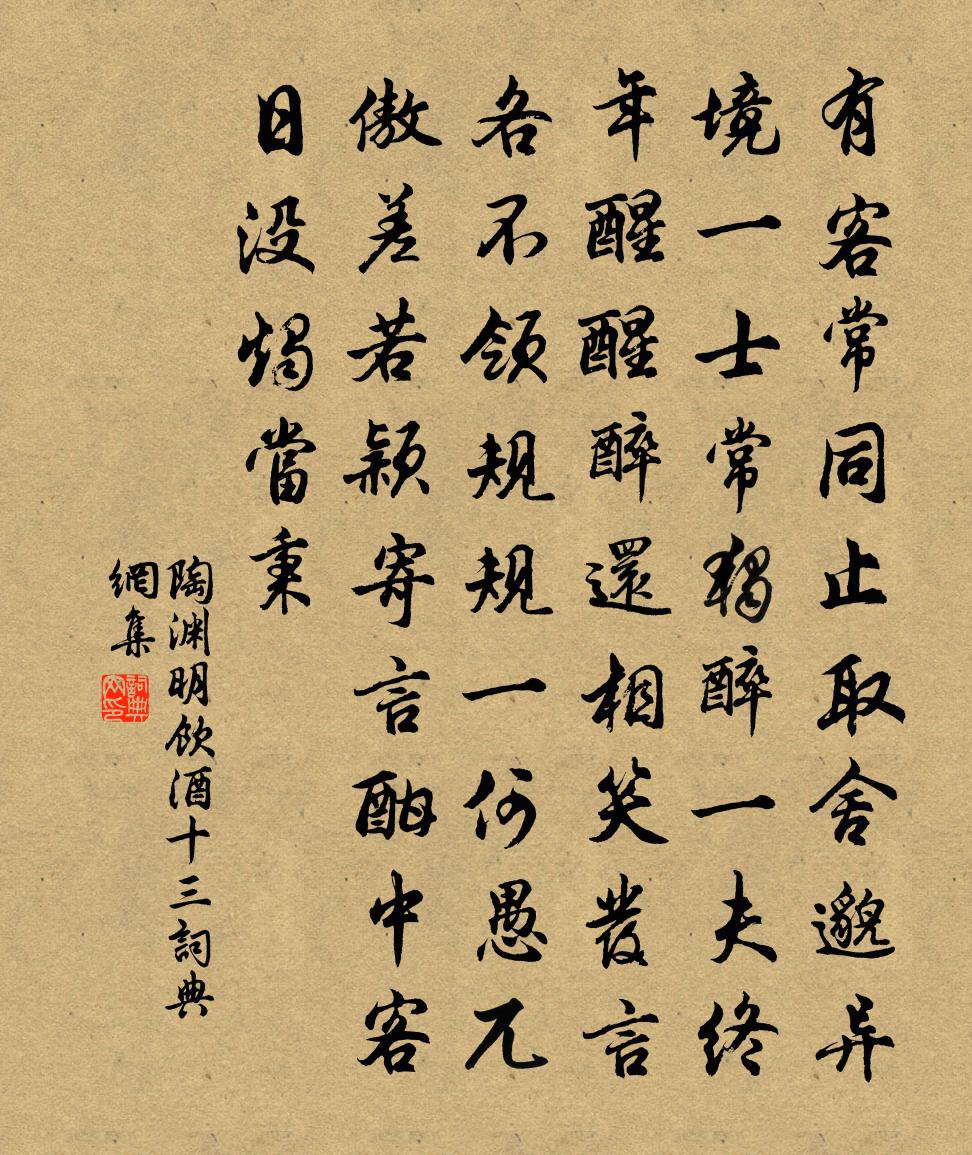 有客常同止取舍邈异
境一士常独醉一夫终
年醒醒醉還相笑發言
各不領規規一何愚兀
傲差若穎寄言酣中客
日没燭當秉
陶渊明飲酒十三詞典
網集
詞典
网印